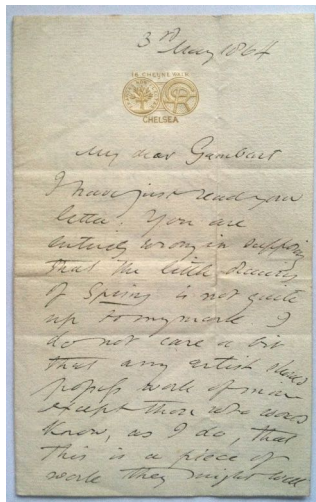 3rd May 1864
16 CHEYNE WALK
CHELSEA
My dear Gambart
I have just read your
letter. You are
entirely wrong in supposing
that the little drawing
of Spring is not quite
up to my mark I
do not care a bit
that any artist
work of mine
except those who
know, as I do, that
this is a piece of
work they might well